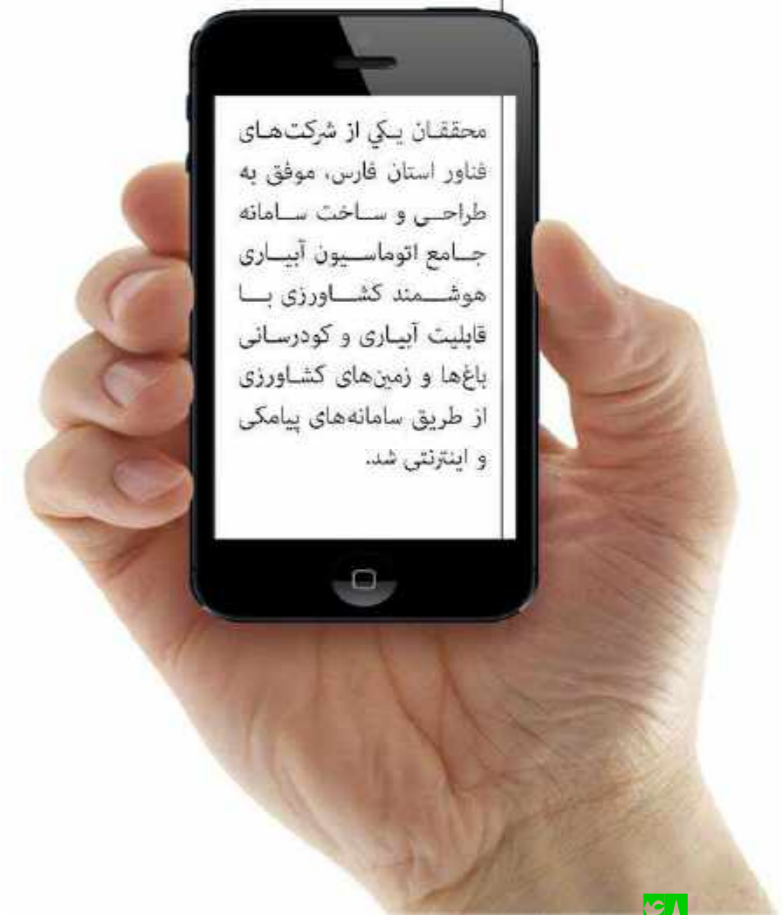 محققان يكي از شرکت‌های
فناور استان فارس، موفق به
طراحی و ساخت سامانه
جامع اتوماسیون آبیاری
هوشمند کشاورزی با
قابلیت آبیاری و کودرسانی
باغ‌ها و زمین‌های کشاورزی
از طریق سامانه‌های پیامکی
و اینترنتی شد.